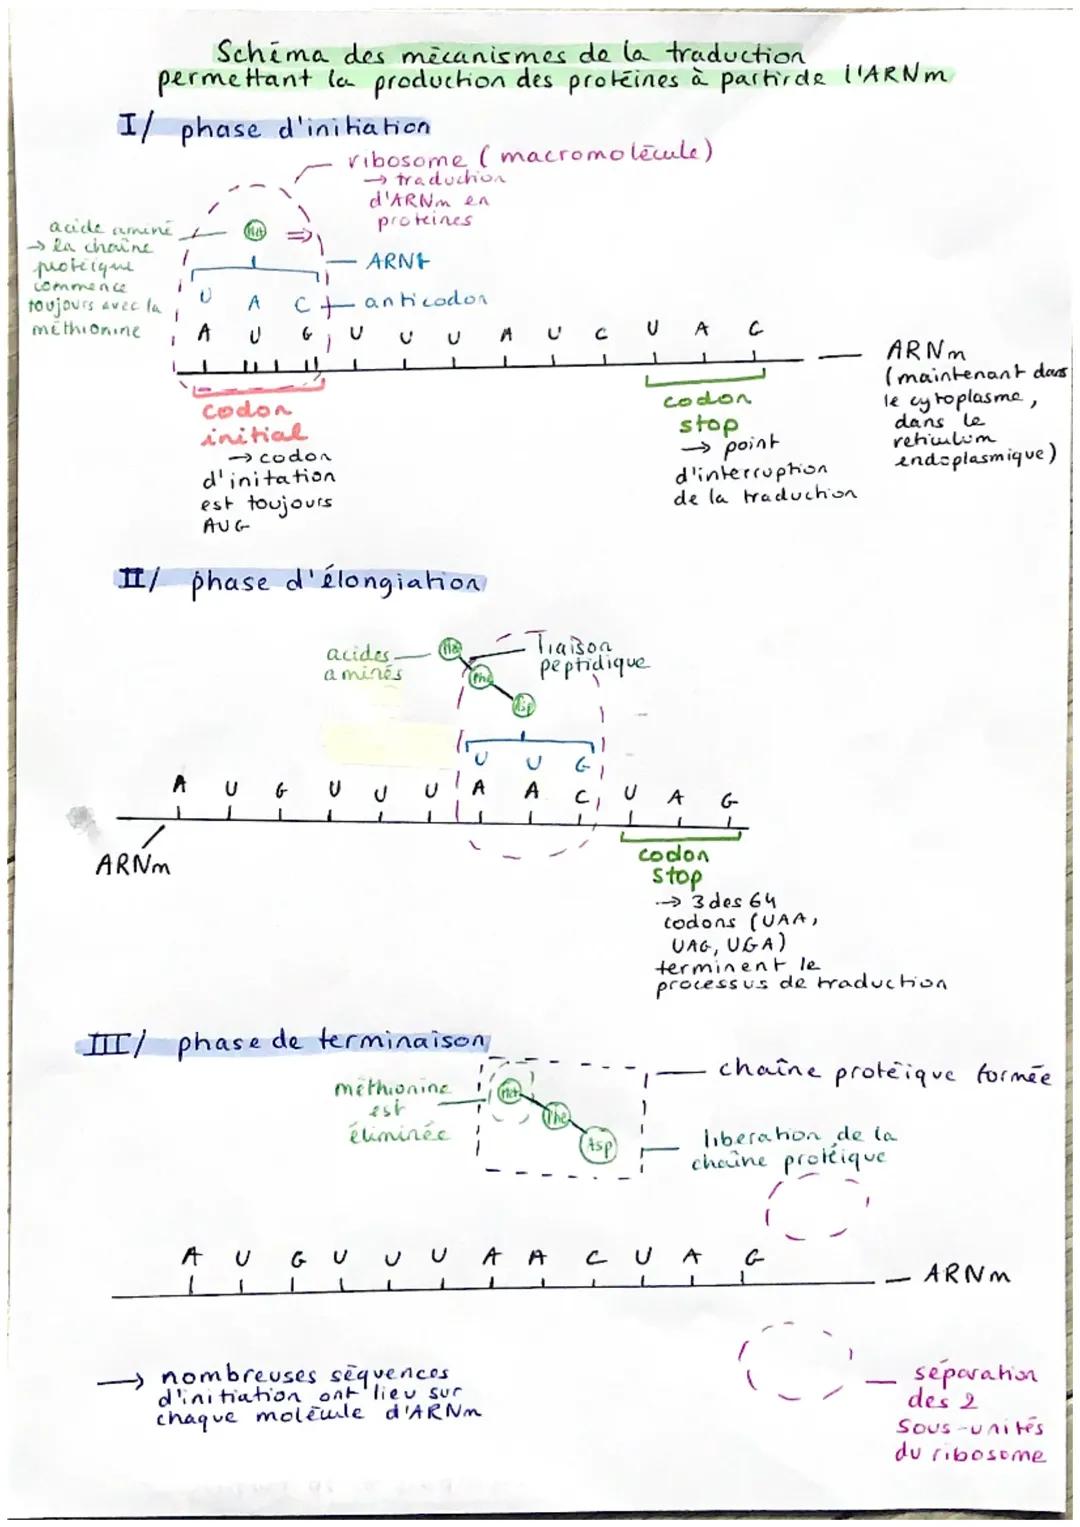 Schéma des mécanismes de la traduction
permettant la production des protéines à partir de l'ARNm
I/ phase d'initiation
ribosome (macromolécule)
→ traduction
d'ARNm en
protéines
acide aminé
→ la chaîne
protéique
commence
toujours avec la
méthionine
Met
ARNt
U A C anticodon
A U G U U U A U C U A C
ARNm
(maintenant dans
le cytoplasme,
dans le
reticulum
endoplasmique)
codon
initial
→ codon
d'initation
est toujours
AUG
codon
stop
→ point
d'interruption
de la traduction
II/ phase d'élongiation
acides
aminés
Met
Phe
Asp
liaison
peptidique
U U G
A U G U U U A A C U A G
ARNm
codon
stop
→ 3 des 64
codons (UAA,
UAG, UGA)
terminent le
processus de traduction
III/ phase de terminaison
méthionine
est
éliminée
Met
Phe
Asp
chaîne protéique formée
libération de la
chaîne protéique
A U G U U U A A C U A G
ARNm
→ nombreuses séquences
d'initiation ont lieu sur
chaque molécule d'ARNm
séparation
des 2
sous-unités
du ribosome